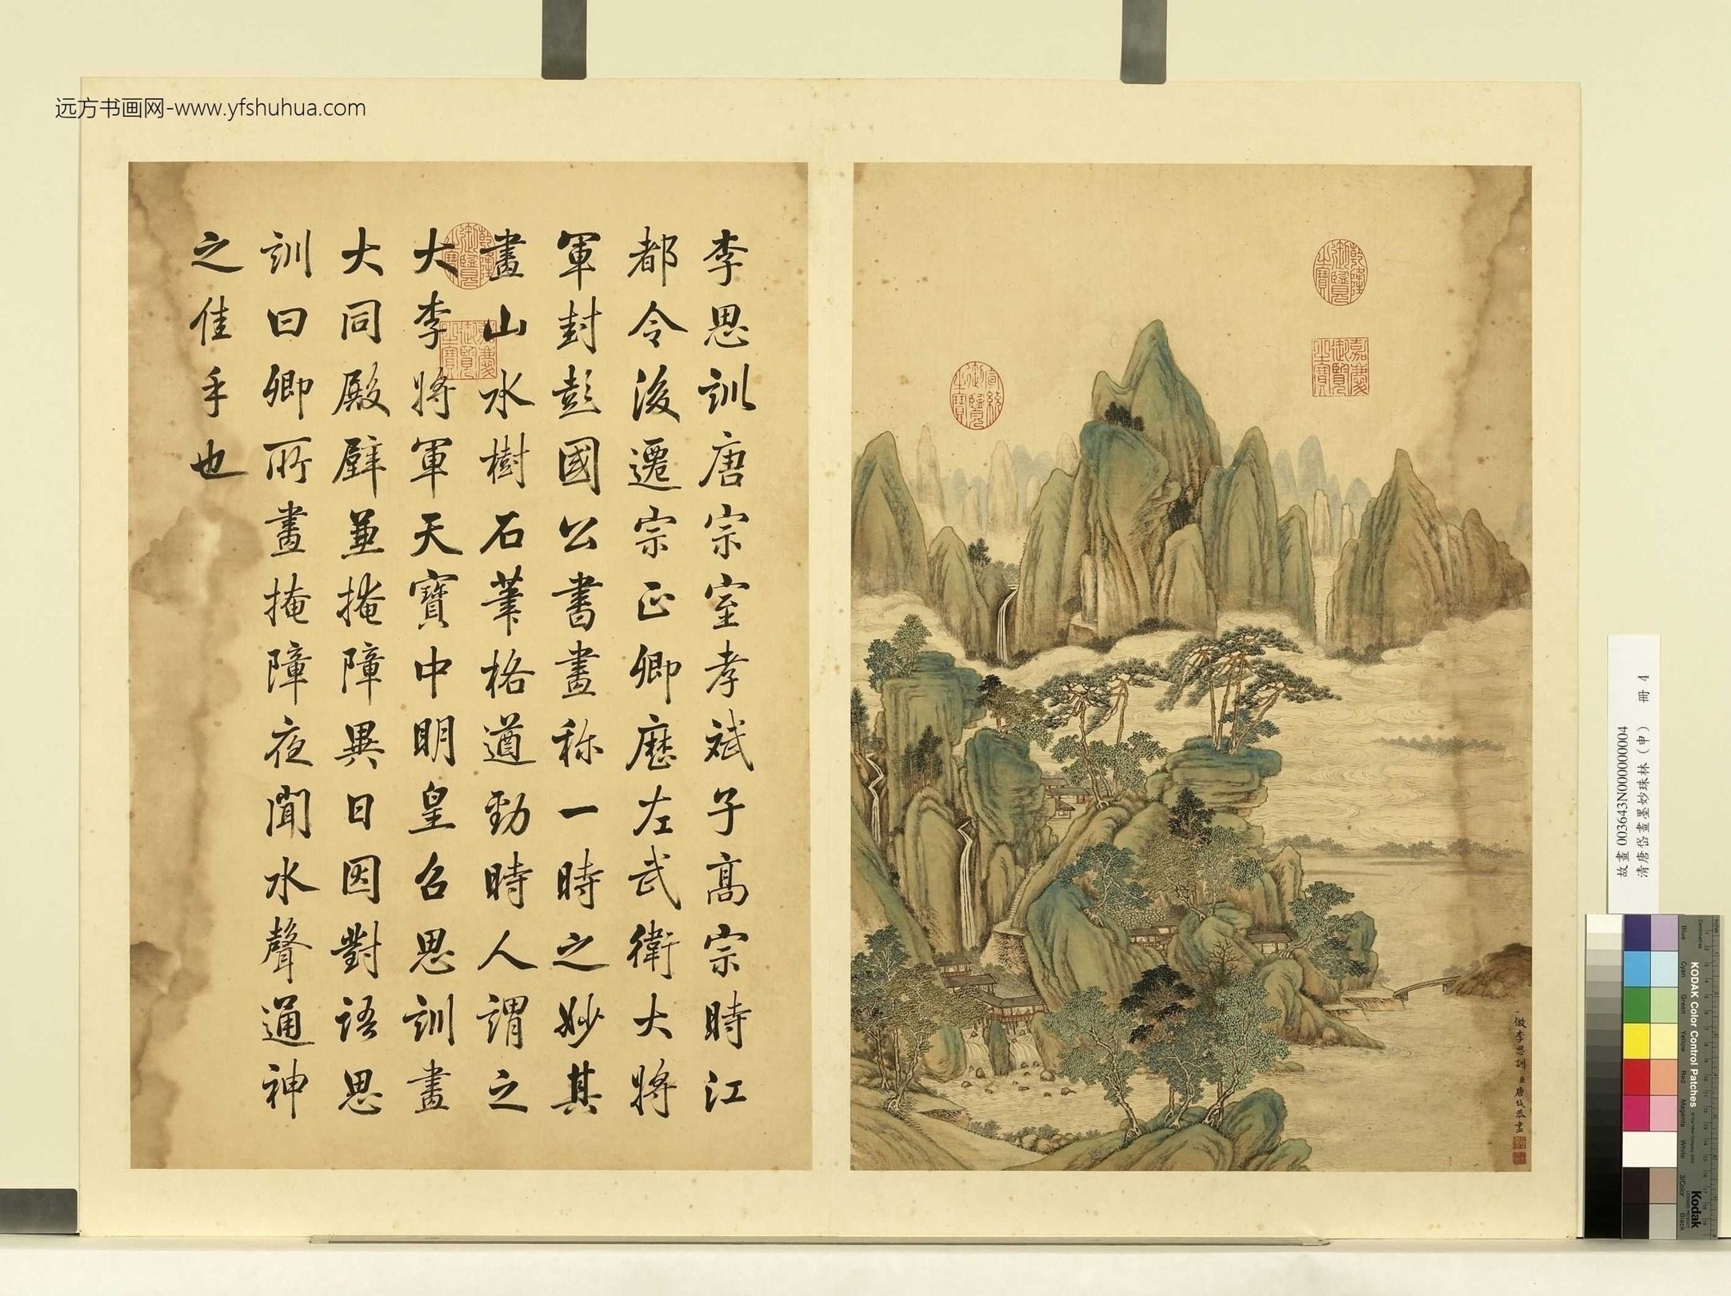 远方书画网-www.yfshuhua.com
李思訓唐宗室孝斌子高宗時江
都令後遷宗正卿歷左武衛大將
軍封彭國公書畫称一時之妙其
畫山水樹石筆格遒勁時人謂之
大李將軍天寶中明皇召思訓畫
大同殿壁兼掩障異日因對語思
訓曰卿所畫掩障夜聞水聲通神
之佳手也
乾隆御覽之寶
嘉慶御覽之寶
宣統御覽之寶
倣李思訓 臣唐岱恭畫
故畫003643N000000004
清唐岱畫墨妙珠林(申) 冊 4
KODAK Color Control Patches
Blue
Cyan
Green
Yellow
Red
Magenta
White
3/Color
Black
Kodak